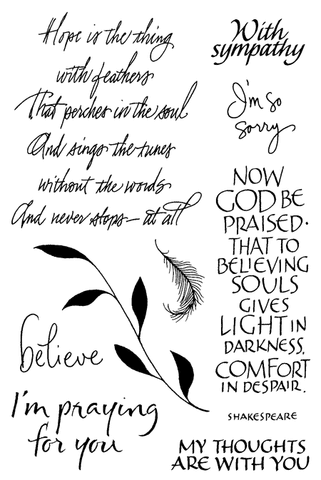 Hope is the thing
with feathers
That perches in the soul
And sings the tunes
without the words
And never stops— at all
With
sympathy
I'm so
sorry
NOW
GOD BE
PRAISED·
THAT TO
BELIEVING
SOULS
GIVES
LIGHT IN
DARKNESS,
COMFORT
IN DESPAIR.
SHAKESPEARE
believe
I'm praying
for you
MY THOUGHTS
ARE WITH YOU